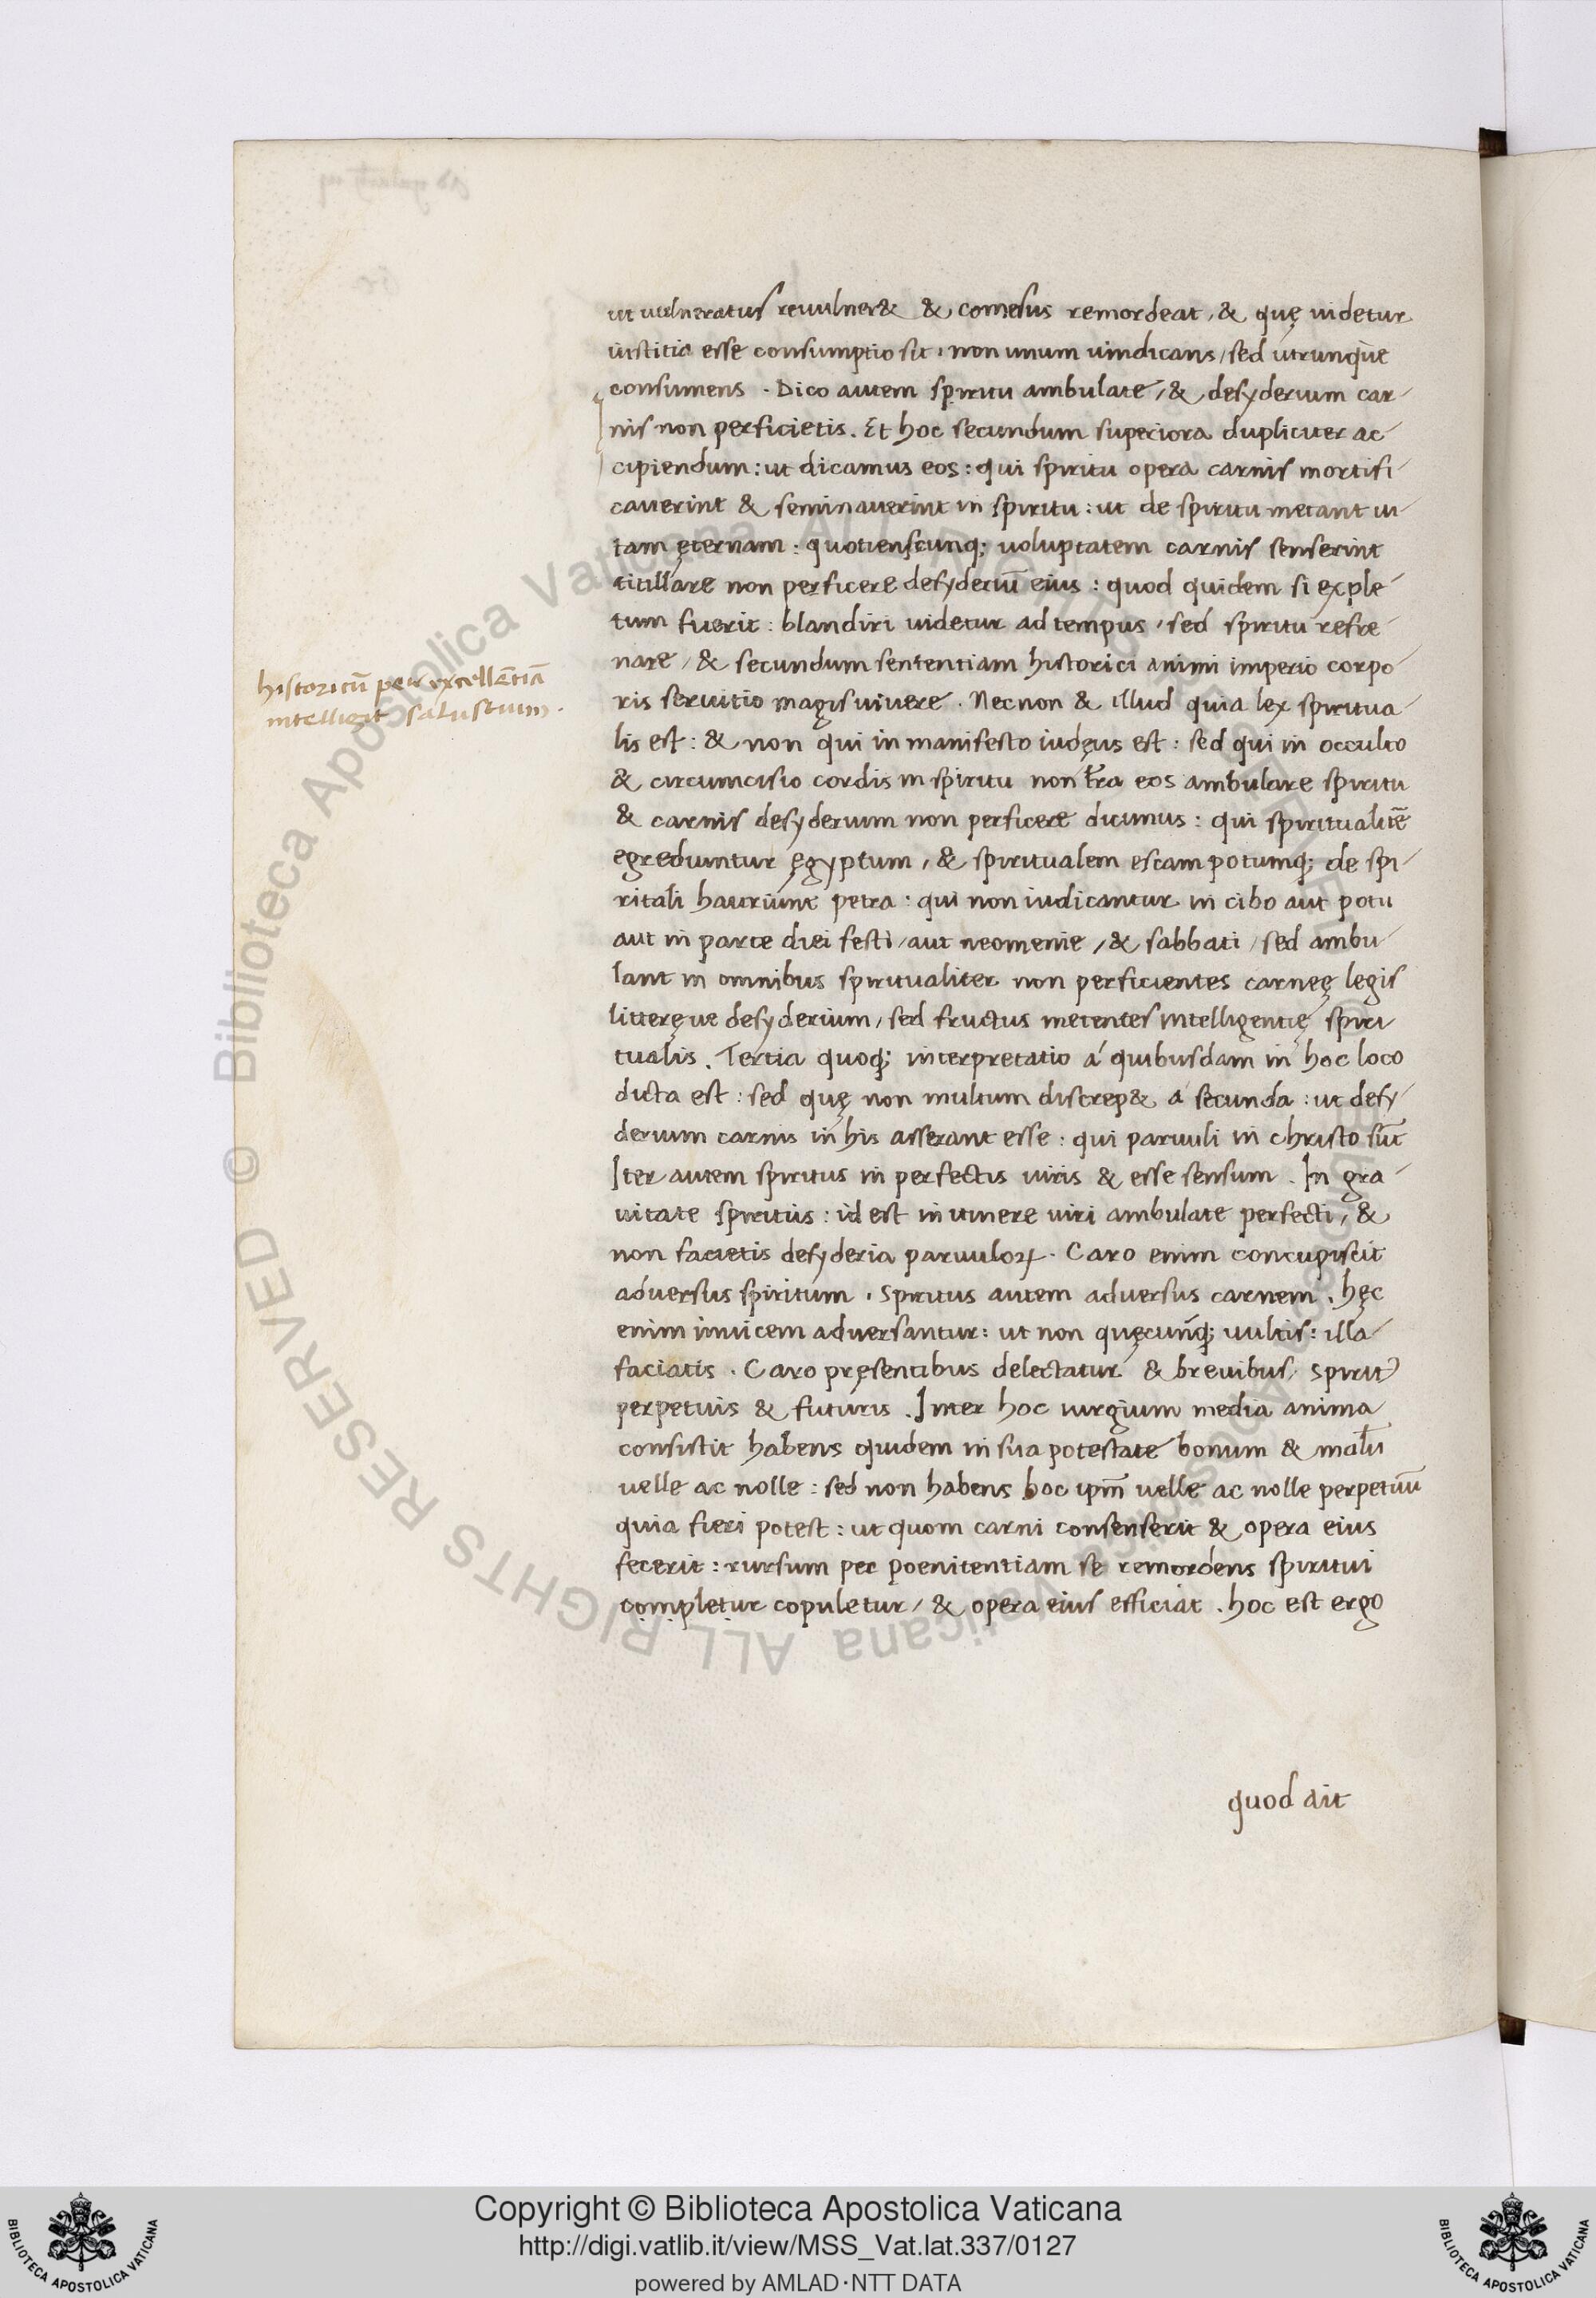 ut vulneratus revulner& & comesus remordeat, & quę uidetur
iustitia esse consumptio sit, non unum uindicans / sed utrunque
consumens . Dico autem spiritu ambulate, & desyderium car-
nis non perficietis. Et hoc secundum superiora dupliciter ac-
cipiendum : ut dicamus eos : qui spiritu opera carnis mortifi-
cauerint & seminauerint in spiritu : ut de spiritu metant ui-
tam ęternam : quotienscunq; uoluptatem carnis senserint
titillare non perficere desyderiū eius : quod quidem si exple-
tum fuerit : blandiri uidetur ad tempus, sed spiritu refre-
nare, & secundum sententiam historici animi imperio corpo-
historicū per excellētiā
intelligit salustium.
ris seruitio magis uiuere . Nec non & illud quia lex spiritua-
lis est : & non qui in manifesto iudęus est : sed qui in occulto
& circumcisio cordis in spiritu non t̄ra eos ambulare spiritu
& carnis desyderium non perficere dicimus : qui spiritualitē
egrediuntur ęgyptum, & spiritualem escam potumq; de spi-
ritali hauriunt petra : qui non iudicantur in cibo aut potu
aut in parte diei festi / aut neomenie, & sabbati / sed ambu-
lant in omnibus spiritualiter non perficientes carneę legis
litteręue desyderium, sed fructus metentes intelligentię spiri-
tualis . Tertia quoq; interpretatio á quibusdam in hoc loco
dicta est : sed quę non multum discrep& á secunda : ut desy-
derium carnis in his asserant esse : qui paruuli in christo sūt
Iter autem spiritus in perfectis uiris & esse sensum . In gra-
uitate spiritus : id est in itinere uiri ambulate perfecti, &
non facietis desyderia paruuloꝝ. Caro enim concupiscit
aduersus spiritum . Spiritus autem aduersus carnem . hęc
enim inuicem aduersantur : ut non quęcunq; uultis : illa
faciatis . Caro pręsentibus delectatur & breuibus, spiritꝰ
perpetuis & futuris . Inter hoc iurgium media anima
consistit habens quidem in sua potestate bonum & malū
uelle ac nolle : sed non habens hoc ipm̄ uelle ac nolle perpetuū
quia fieri potest : ut quom carni consenserit & opera eius
fecerit : rursum per poenitentiam se remordens spiritui
completur copuletur, & opera eius efficiat . hoc est ergo
quod ait
© Biblioteca Apostolica Vaticana ALL RIGHTS RESERVED
© Biblioteca Apostolica Vaticana ALL RIGHTS RESERVED
Copyright © Biblioteca Apostolica Vaticana
http://digi.vatlib.it/view/MSS_Vat.lat.337/0127
powered by AMLAD·NTT DATA
BIBLIOTECA APOSTOLICA VATICANA
BIBLIOTECA APOSTOLICA VATICANA